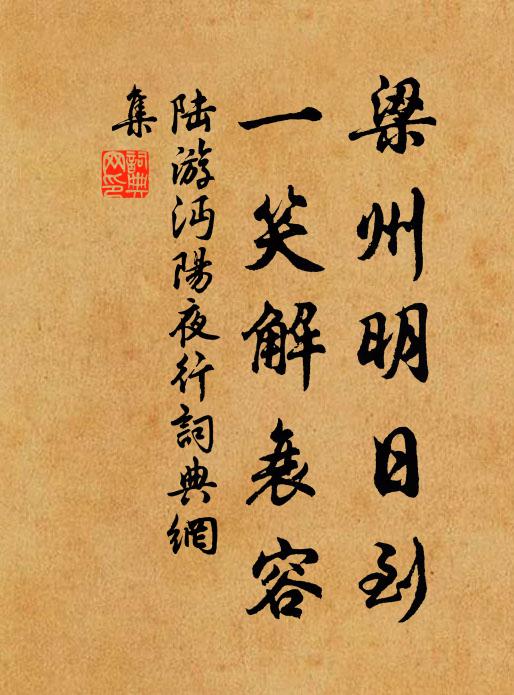 梁州明日到
一笑解衰容
陆游沔陽夜行詞典網
集
詞典
网印